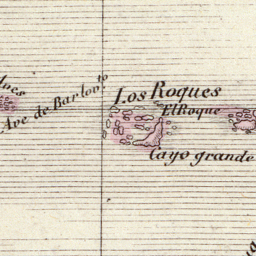 Aves
Ave de Barlov.to
Los Roques
El Roque
Cayo grande